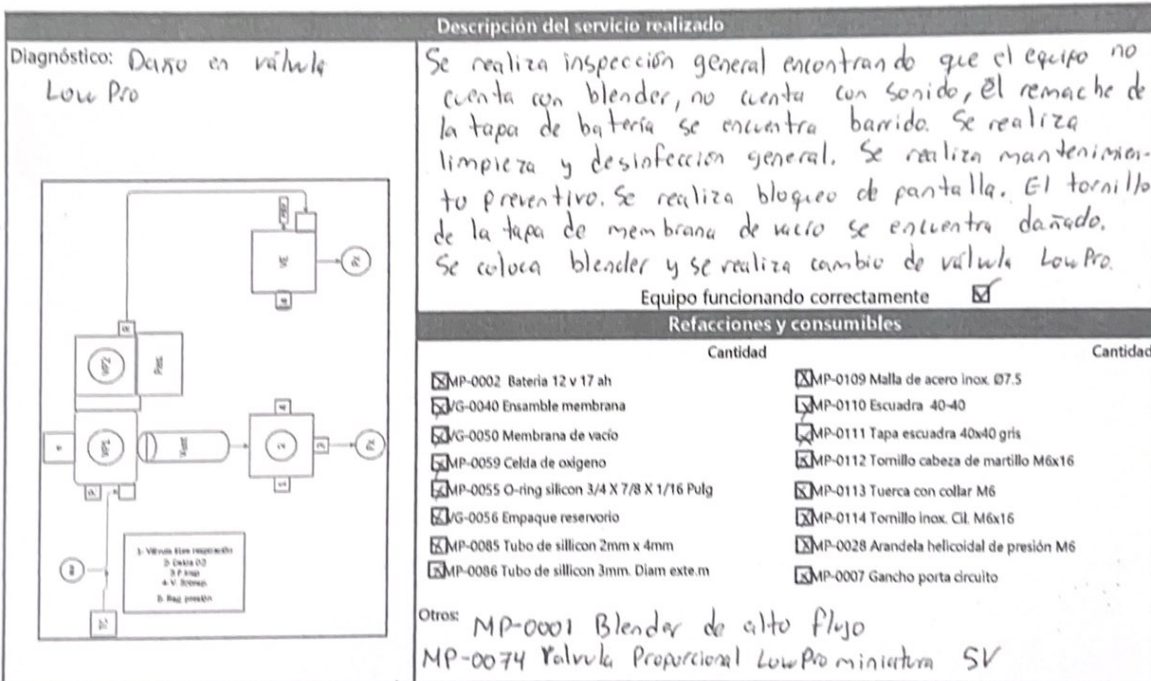 Descripción del servicio realizado
Diagnóstico: Daño en válvula
Low Pro
Se realiza inspección general encontrando que el equipo no
cuenta con blender, no cuenta con sonido, él remache de
la tapa de batería se encuentra barrido. Se realiza
limpieza y desinfección general. Se realiza mantenimien-
to preventivo. Se realiza bloqueo de pantalla. El tornillo
de la tapa de membrana de vacío se encuentra dañado.
Se coloca blender y se realiza cambio de válvula LowPro.
Equipo funcionando correctamente
VE
Px
VP2
Pas.
VP1
Vent
3
Px
B
2- Celda O2
Refacciones y consumibles
Cantidad Cantidad
MP-0002 Bateria 12 v 17 ah
VG-0040 Ensamble membrana
VG-0050 Membrana de vacío
MP-0059 Celda de oxigeno
MP-0055 O-ring silicon 3/4 X 7/8 X 1/16 Pulg
VG-0056 Empaque reservorio
MP-0085 Tubo de sillicon 2mm x 4mm
MP-0086 Tubo de sillicon 3mm. Diam exte.m
MP-0109 Malla de acero inox. Ø7.5
MP-0110 Escuadra 40-40
MP-0111 Tapa escuadra 40x40 gris
MP-0112 Tornillo cabeza de martillo M6x16
MP-0113 Tuerca con collar M6
MP-0114 Tornillo inox. Cil. M6x16
MP-0028 Arandela helicoidal de presión M6
MP-0007 Gancho porta circuito
Otros: MP-0001 Blender de alto flujo
MP-0074 Valvula Proporcional LowPro miniatura 5V